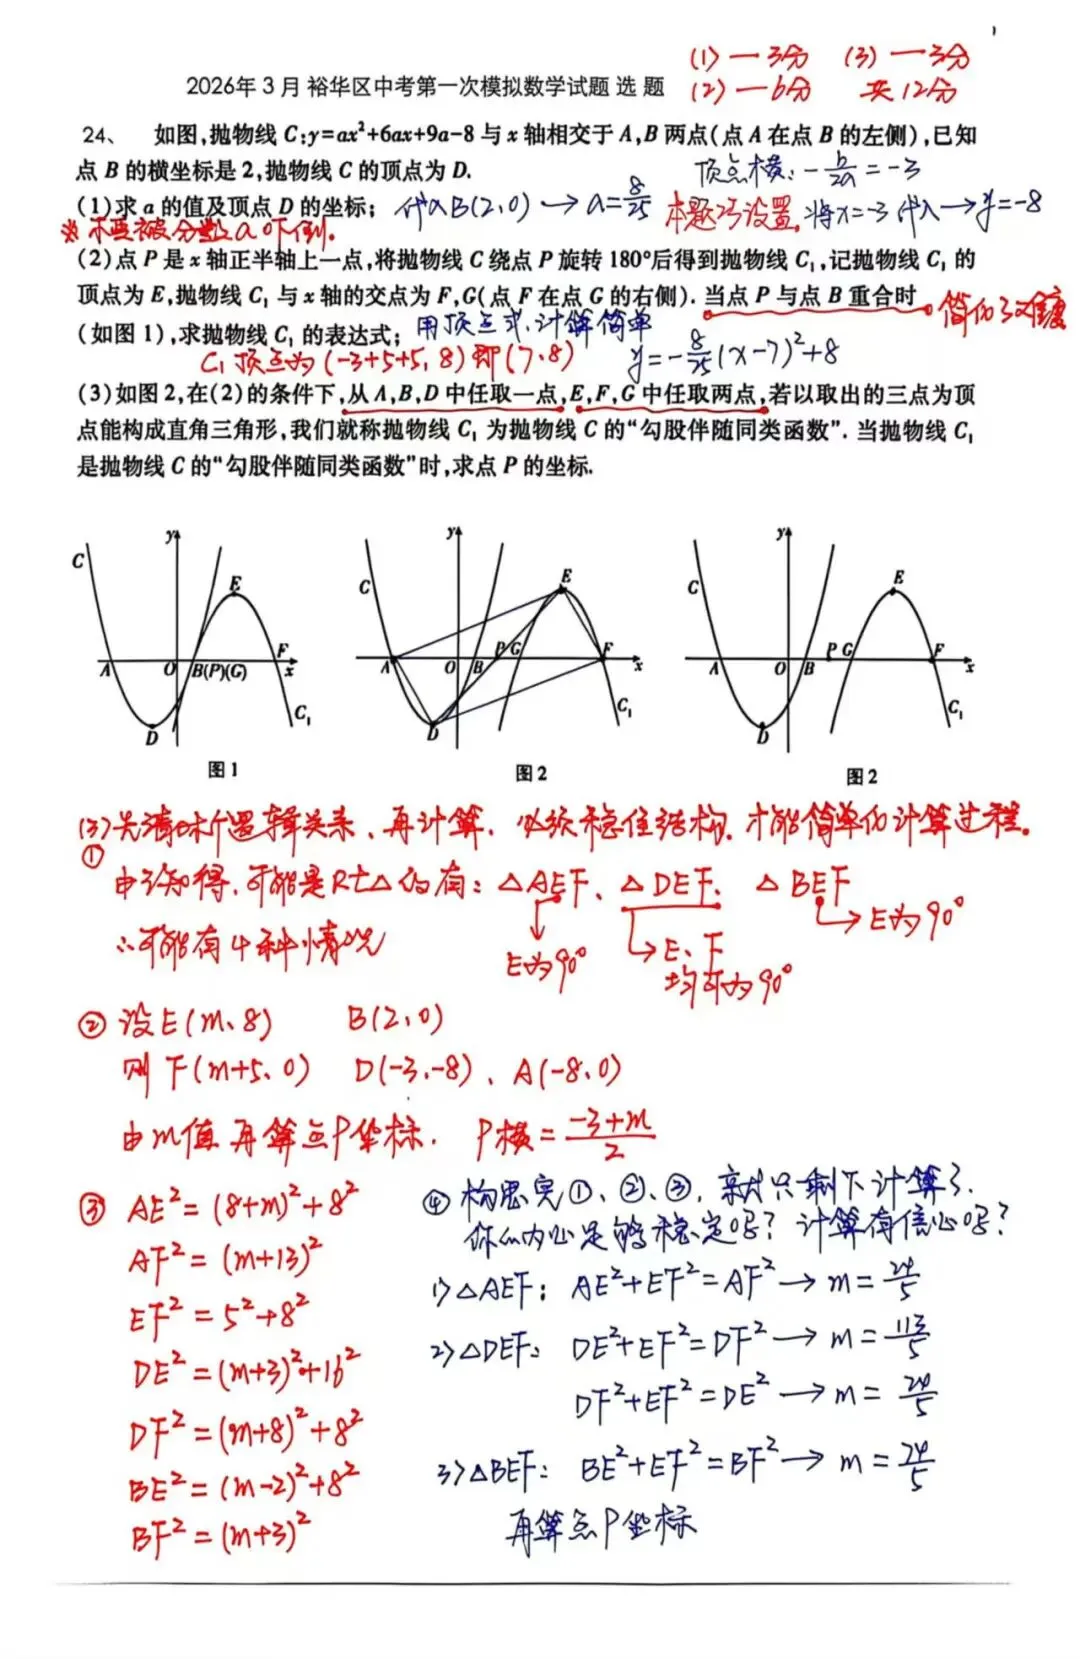 (1) — 3分 (3) — 3分
2026年3月 裕华区中考第一次模拟数学试题 选 题
(2) — 6分 共12分
24、 如图,抛物线C:y=ax²+6ax+9a-8与x轴相交于A,B两点(点A在点B的左侧),已知
点B的横坐标是2,抛物线C的顶点为D.
顶点横: -b/2a = -3
(1)求a的值及顶点D的坐标;
代入B(2,0) → a=8/25 本题巧设置,将x=-3代入→y=-8
※不要被分数a吓倒.
(2)点P是x轴正半轴上一点,将抛物线C绕点P旋转180°后得到抛物线C₁,记抛物线C₁的
顶点为E,抛物线C₁与x轴的交点为F,G(点F在点G的右侧).当点P与点B重合时
简化了难度
(如图1),求抛物线C₁的表达式;
用顶点式,计算简单
C₁顶点为(-3+5+5,8)即(7,8) y=-8/25(x-7)²+8
(3)如图2,在(2)的条件下,从A,B,D中任取一点,E,F,G中任取两点,若以取出的三点为顶
点能构成直角三角形,我们就称抛物线C₁为抛物线C的“勾股伴随同类函数”.当抛物线C₁
是抛物线C的“勾股伴随同类函数”时,求点P的坐标.
C y E A O B(P)(G) F x D C₁
图1
C y E A O B P G F x D C₁
图2
C y E A O B P G F x D C₁
图2
(3)先清晰逻辑关系、再计算、必须稳住结构,才能简单化计算过程.
① 由已知得,可能是Rt△的有: △AEF、△DEF、△BEF
∴可能有4种情况
E为90°
E、F均可为90°
E为90°
② 设E(m、8) B(2,0)
则F(m+5、0) D(-3,-8)、A(-8,0)
由m值再算点P坐标. P横=(-3+m)/2
③ AE²=(8+m)²+8²
AF²=(m+13)²
EF²=5²+8²
DE²=(m+3)²+16²
DF²=(m+8)²+8²
BE²=(m-2)²+8²
BF²=(m+3)²
④构思完①、②、③,就只剩下计算了.
你的内心足够稳定吗?计算有信心吗?
1)△AEF: AE²+EF²=AF² → m=24/5
2)△DEF: DE²+EF²=DF² → m=113/5
DF²+EF²=DE² → m=24/5
3)△BEF: BE²+EF²=BF² → m=74/5
再算点P坐标